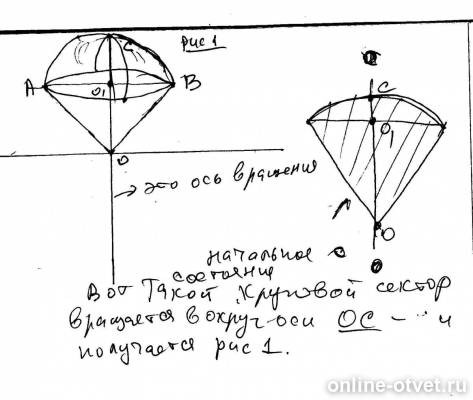 Рис 1
C
A
O1
B
O
→ это ось вращения
C
O1
O
начальное
состояние
Вот такой круговой сектор
вращается вокруг оси OC - и
получается рис 1.
online-otvet.ru